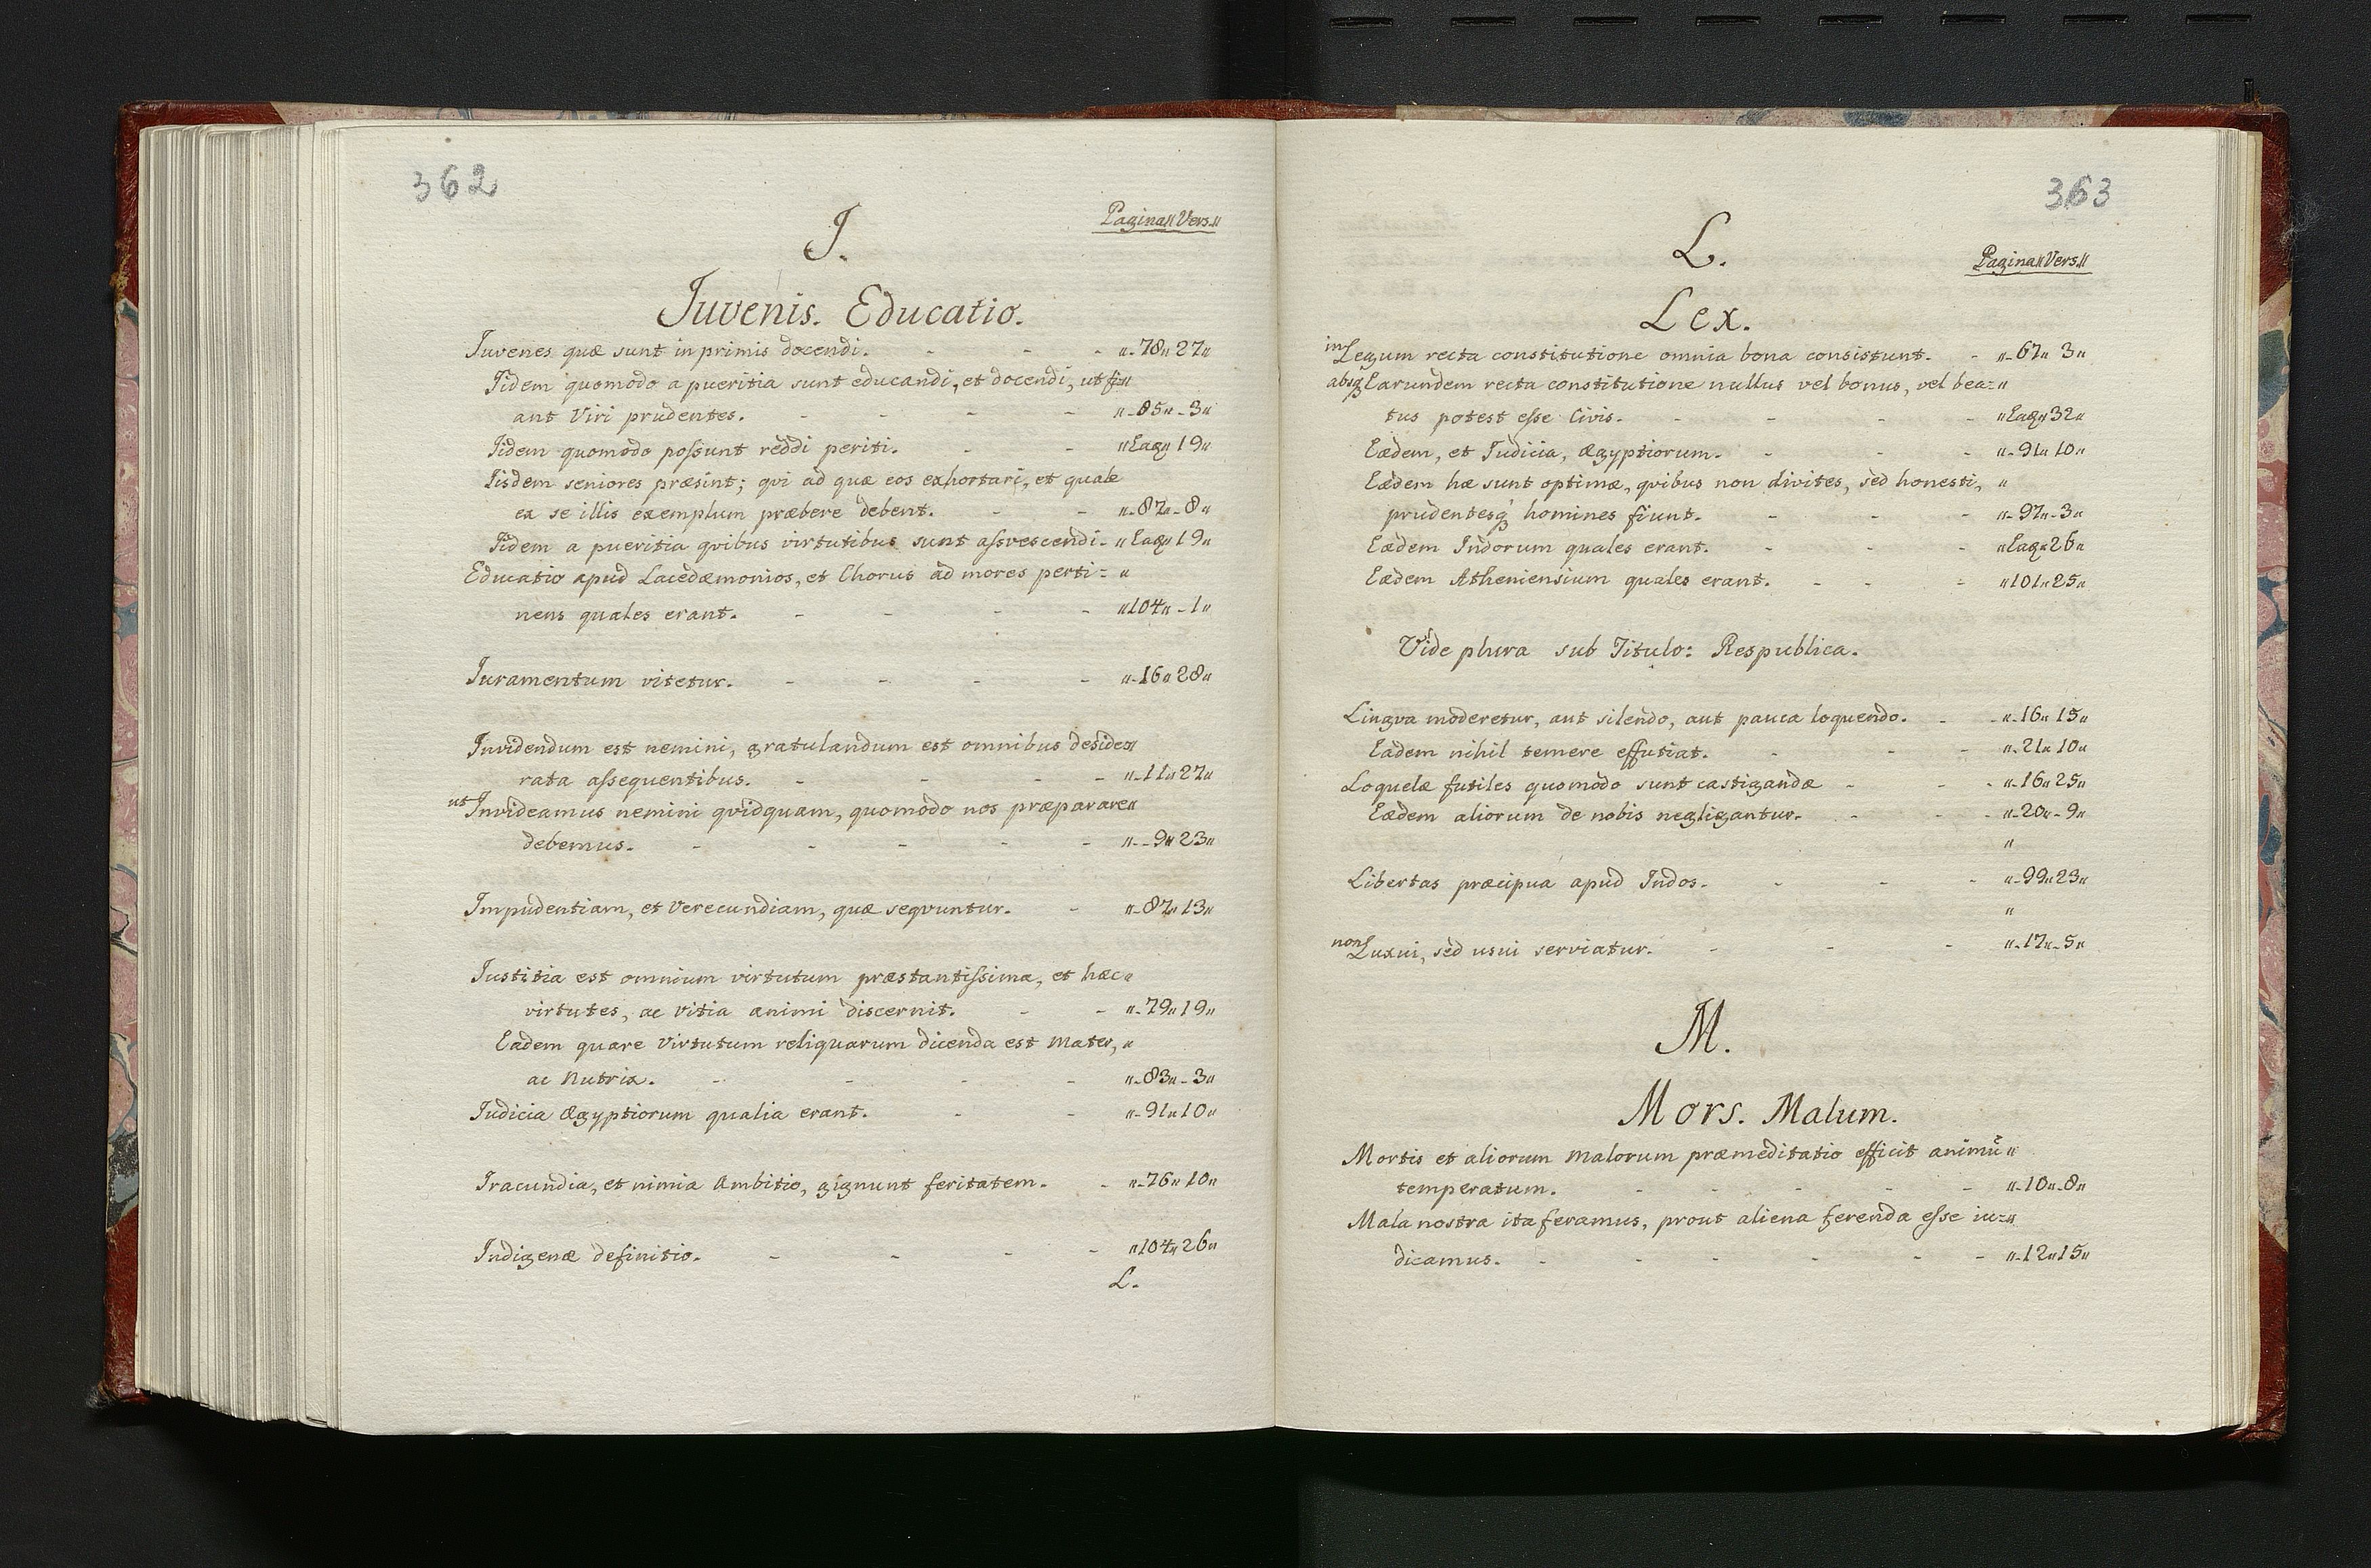 362
Pagina〃Vers〃
I.
Iuvenis. Educatio.
Iuvenes quæ sunt inprimis docendi. - - - 〃-78〃27〃
Iidem quomodo a pueritia sunt educandi, et docendi, ut fi〃
ant Viri prudentes. - - - - 〃-85〃-3〃
Iidem quomodo poſsunt reddi periti. - - 〃Eaq〃19〃
Iisdem seniores præsint; qvi ad quæ eos exhortari, et quale
ex se illis exemplum præbere debent. - - 〃-87〃-8〃
Iidem a pueritia qvibus virtutibus sunt aſsvescendi - 〃Eaq〃19〃
Educatio apud Lacedæmonios, et Chorus ad mores perti= 〃
nens quales erant. - - - - 〃104〃-1〃
Iuramentum vitetur. - - - - 〃-16〃28〃
Invidendum est nemini, gratulandum est omnibus deside〃
rata aſsequentibus. - - - - 〃-11〃27〃
ut Invideamus nemini qvidquam, quomodo nos præparare〃
debemus. - - - - - 〃--9〃23〃
Impudentiam, et Verecundiam, quæ seqvuntur. - 〃-87〃13〃
Iustitia est omnium virtutum præstantiſsima, et hæc〃
virtutes, ac Vitia animi discernit. - - 〃-79〃19〃
Eadem quare Virtutum reliquarum dicenda est Mater, 〃
ac Nutrix. - - - - 〃-83〃-3〃
Iudicia Ægyptiorum qualia erant. - - 〃-91〃10〃
Iracundia, et nimia Ambitio, gignunt feritatem. - 〃-76〃10〃
Indigenæ definitio. - - - - 〃104〃26〃
L.
363
L.
Pagina〃Vers〃
Lex.
in Legum recta constitutione omnia bona consistunt. - 〃-67〃 3〃
absq Earundem recta constitutione nullus vel bonus, vel bea=〃
tus potest eſse Civis. - - - - 〃Eaq〃32〃
Eædem, et Iudicia, Ægyptiorum. - - - 〃-91〃10〃
Eædem hæ sunt optimæ, qvibus non divites, sed honesti, 〃
prudentesq homines fiunt. - - - 〃-97〃-3〃
Eædem Indorum quales erant. - - - 〃Eaq〃26〃
Eædem Atheniensium quales erant. - - - 〃101〃25〃
Vide plura sub Titulo: Respublica.
Lingva moderetur, aut silendo, aut pauca loquendo. - - 〃-16〃15〃
Eadem nihil temere effutiat. - - - 〃-21〃10〃
Loquelæ futiles quomodo sunt castigandæ - - - 〃-16〃25〃
Eædem aliorum de nobis negligantur. - - - 〃-20〃-9〃
〃
Libertas præcipua apud Indos. - - - 〃-99〃23〃
〃
non Luxui, sed usui serviatur. - - - 〃-17〃-5〃
M.
Mors. Malum.
Mortis et aliorum Malorum præmeditatio efficit animū〃
temperatum. - - - - - 〃-10〃-8〃
Mala nostra ita feramus, prout aliena ferenda eſse iu=〃
dicamus. - - - - - - 〃-12〃15〃